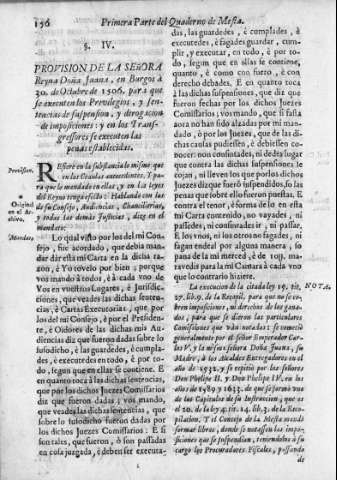 156 Primera Parte del Quaderno de Mesta.
§. IV.
PROVISION DE LA SEÑORA
Reyna Doña Juana, en Burgos à
30. de Octubre de 1506. para que
se executen los Previlegios, y sen-
tencias de suspension, y derogacion
de imposiciones: y en los Trans-
gressores se executen las
penas establecidas.
Provision.
REfiere en la substancia lo mismo que
en las Ceudas antecedentes. Y pa-
ra que lo mandado en ellas, y en las leyes
del Reyno tenga efecto: Hablando con los
de su Consejo, Audiencias, Chancillerias,
y todas las demàs Justicias, dize en el
mandato:
* Original
en el Ar-
chivo.
Mandato.
Lo qual visto por los del mi Con-
sejo, fue acordado, que debia man-
dar dar esta mi Carta en la dicha ra-
zon, è Yo tovelo por bien, porque
vos mando à todos, è à cada vno de
Vos en vuestros Lugares, è Jurisdic-
ciones, que veades las dichas senten-
cias, è Cartas Executorias, que por
los del mi Consejo, è por el Presiden-
te, è Oidores de las dichas mis Au-
diencias diz que fueron dadas sobre lo
susodicho, è las guardedes, è cumpla-
des, è executedes en todo, è por to-
do, segun que en ellas se contiene. E
en quanto toca à las dichas sentencias,
que por los dichos Juezes Comissarios
diz que fueron dadas; vos mando,
que veades las dichas sentencias, que
sobre lo susodicho fueron dadas por
los dichos Juezes Comissarios: E si
son tales, que fueron, ò son passadas
en cosa juzgada, è deben ser executa-
das, las guardedes, è cumplades, è
executedes, è fagades guardar, cum-
plir, y executar, en todo, è por to-
do, segun que en ellas se contiene,
quanto, è como con fuero, è con
derecho debades. E en quanto toca
à las dichas suspensiones, que diz que
fueron fechas por los dichos Juezes
Comissarios; vos mando, que si fasta
aora no han sido alzadas por mi man-
dado, ò por los Juezes, que de las di-
chas causas pudiessen, è debiessen co-
nocer: non consintades, ni dedes lugar
que contra las dichas suspensiones se
lo jan, ni lleven los que por los dichos
Juezes diz que fueron suspendidos, so las
penas que sobre ello fueron puestas. E
contra el tenor, è forma de lo en esta
mi Carta contenido, no vayades, ni
passedes, ni consintades ir, ni passar.
E los vnos, ni los otros no fagades, ni
fagan endeal por alguna manera, so
pena de la mi merced, è de 10y. mara-
vedis para la mi Camara à cada vno
que lo contrario hiziere.
La execucion de la citada ley 19. tit. NOTA.
27. lib. 9. de la Recopil. para que no se co-
bren imposiciones, ni derechos de los gana-
dos, para que se dieron las particulares
Comisiones que vàn notadas: se cometiò
generalmente por el señor Emperador Car-
los V. y la misma señora Doña Juana, su
Madre, à los Alcaldes Entregadores en el
año de 1532. y se repitiò por los señores
Don Phelipe II. y Don Phelipe IV. en los
años de 1589 y 1633. de que se formò vno
de los Capitulos de su Instruccion, que es
el 20. de la ley 4. tit. 14. lib. 3. de la Reco-
pilacion. Y el Consejo de la Mesta mandò
formar libros, donde se notassen las impo-
siciones que se suspendian, teniendolos à su
cargo los Procuradores Fiscales, passando
de